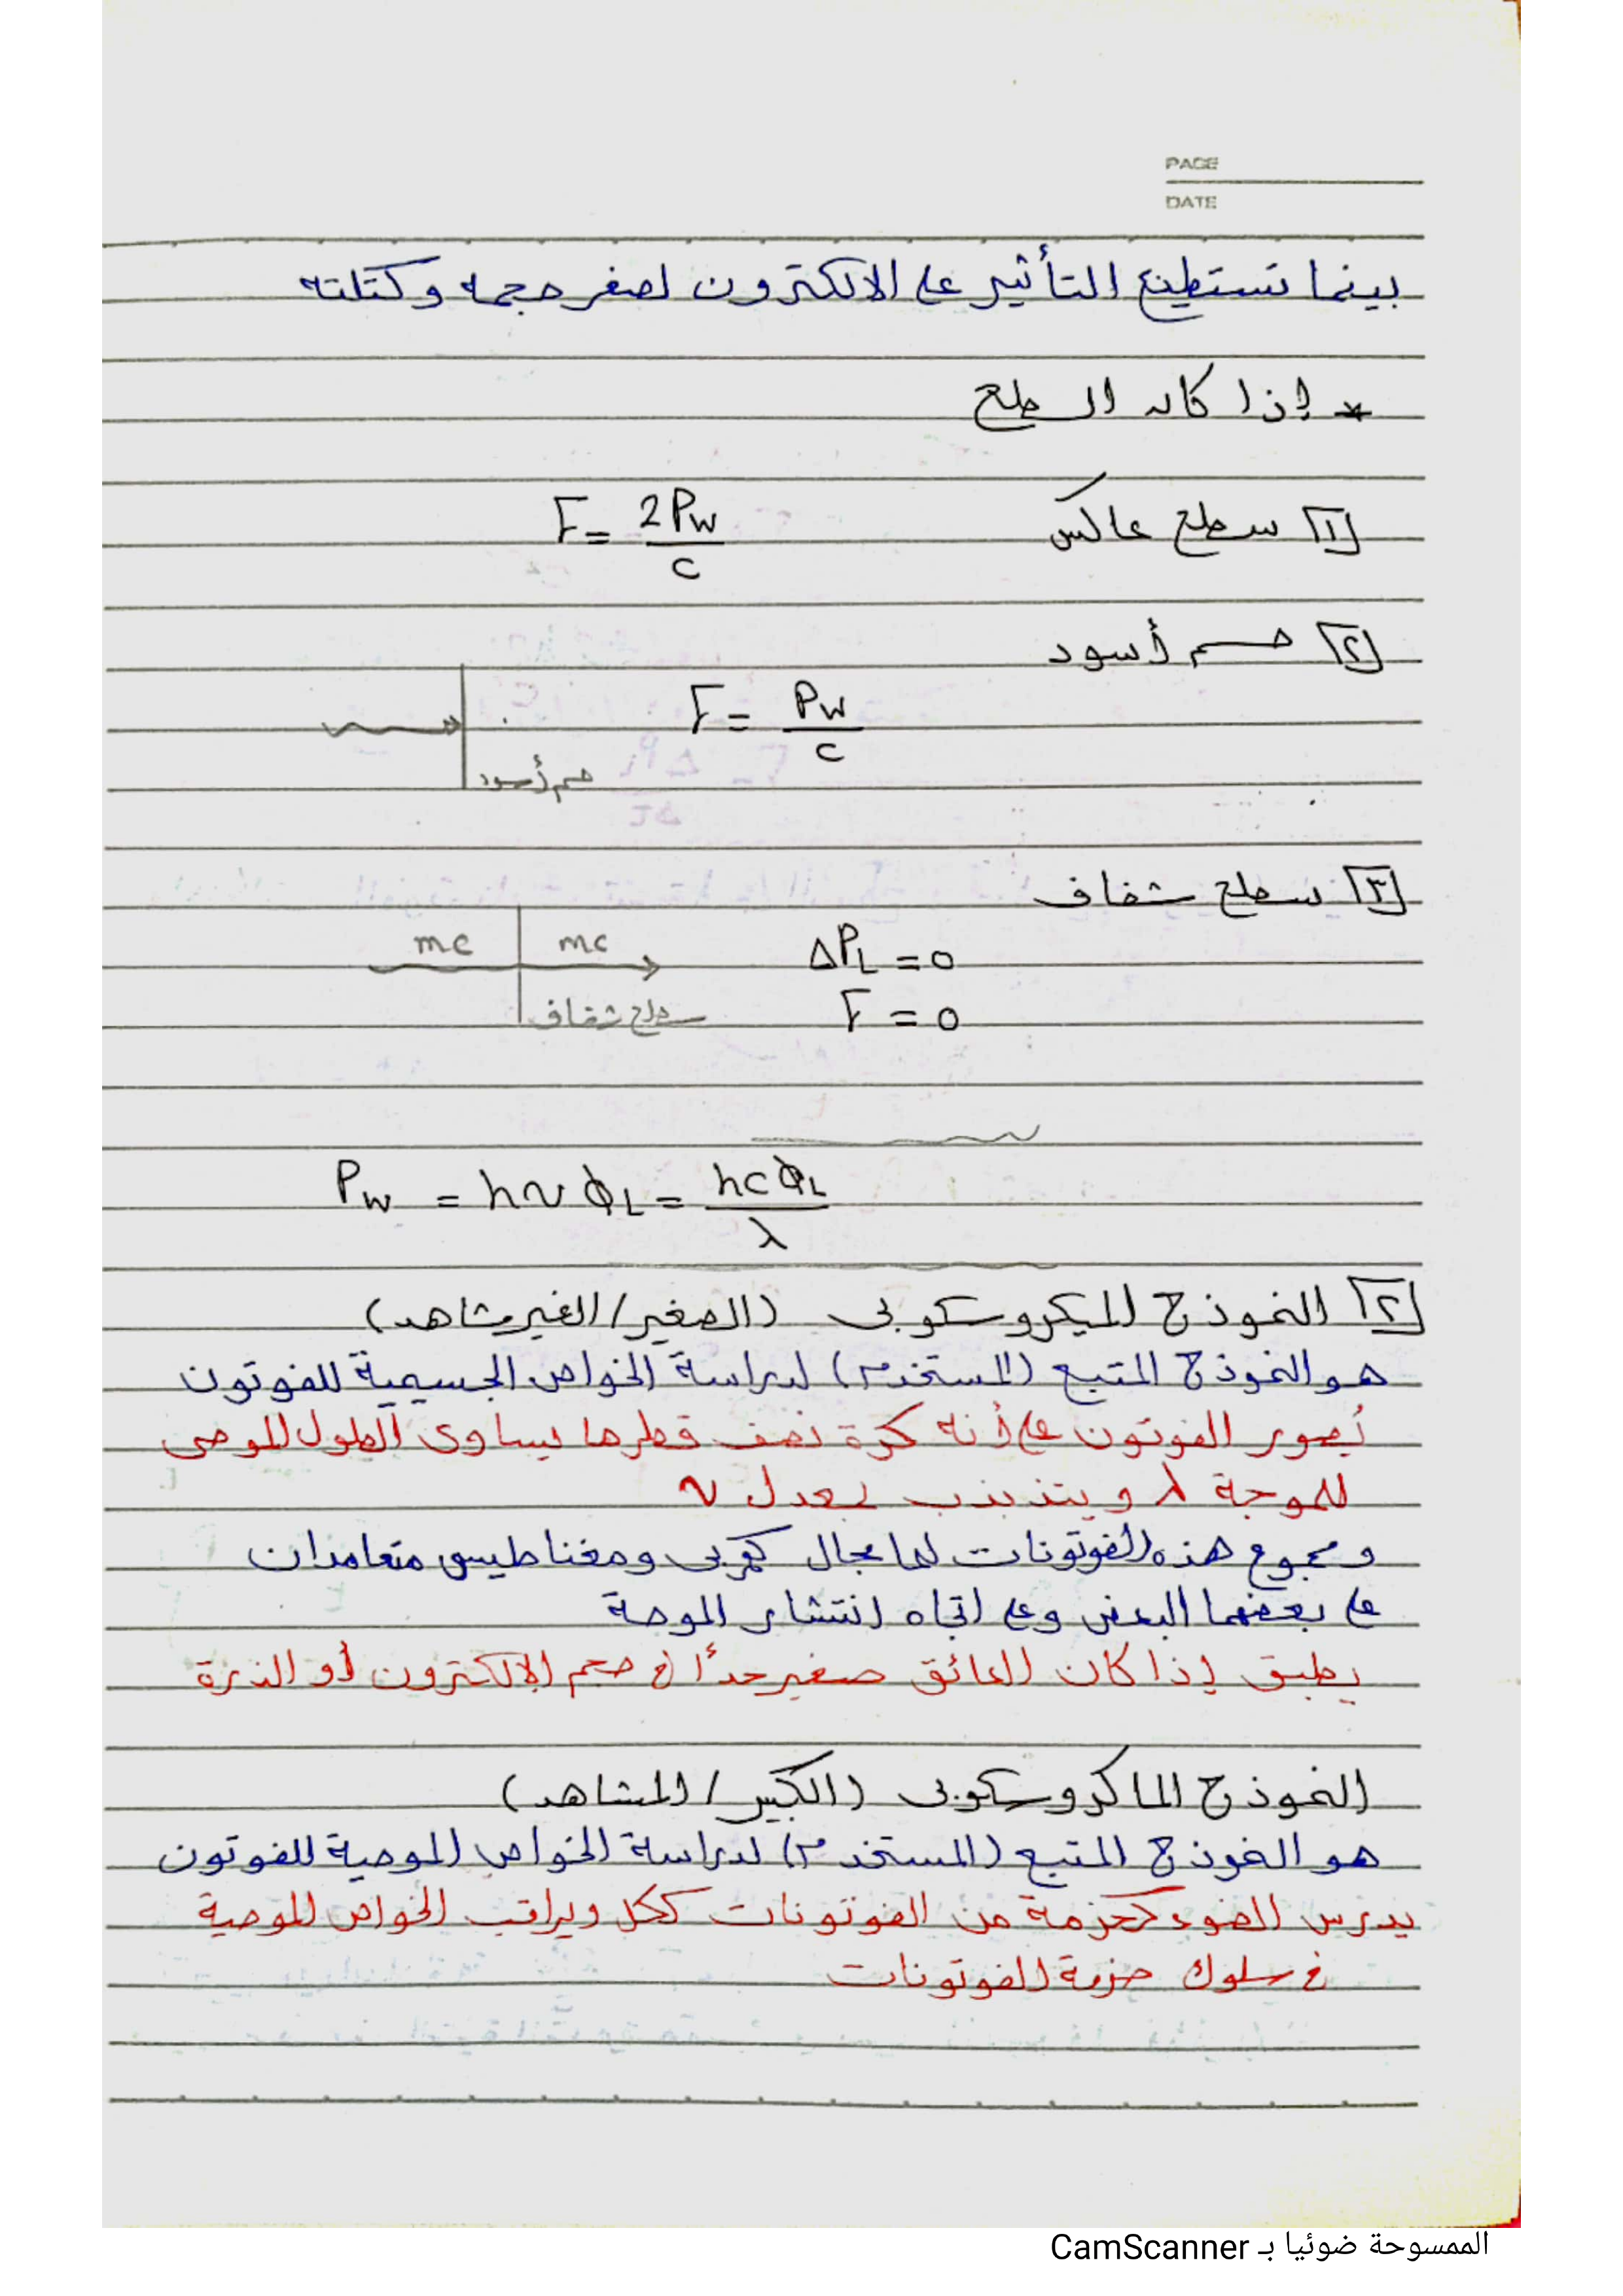 PAGE
DATE
بينما تستطيع التأثير على الالكترون لصغر حجمه وكتلته
* إذا كان السطح
[١] سطح عاكس F = 2Pw / c
[٢] جسم أسود
F = Pw / c
جسم أسود
[٣] سطح شفاف
mc mc ΔPL = 0
سطح شفاف F = 0
Pw = hν ϕL = hcϕL / λ
[٢] النموذج الميكروسكوبى (الصغير/الغير مشاهد)
هو النموذج المتبع (المستخدم) لدراسة الخواص الجسيمية للفوتون
يُصور الفوتون على أنه كرة نصف قطرها يساوى الطول الموجى
للموجة λ ويتذبذب بمعدل ν
ومجموع هذه الفوتونات لها مجال كهربى ومغناطيسى متعامدان
على بعضهما البعض وعلى اتجاه انتشار الموجة
يطبق إذا كان العائق صغير جدًا فى حجم الإلكترون أو الذرة
النموذج الماكروسكوبى (الكبير/المشاهد)
هو النموذج المتبع (المستخدم) لدراسة الخواص الموجية للفوتون
يدرس الضوء كحزمة من الفوتونات ككل ويراقب الخواص الموجية
فى سلوك حزمة الفوتونات
الممسوحة ضوئيا بـ CamScanner